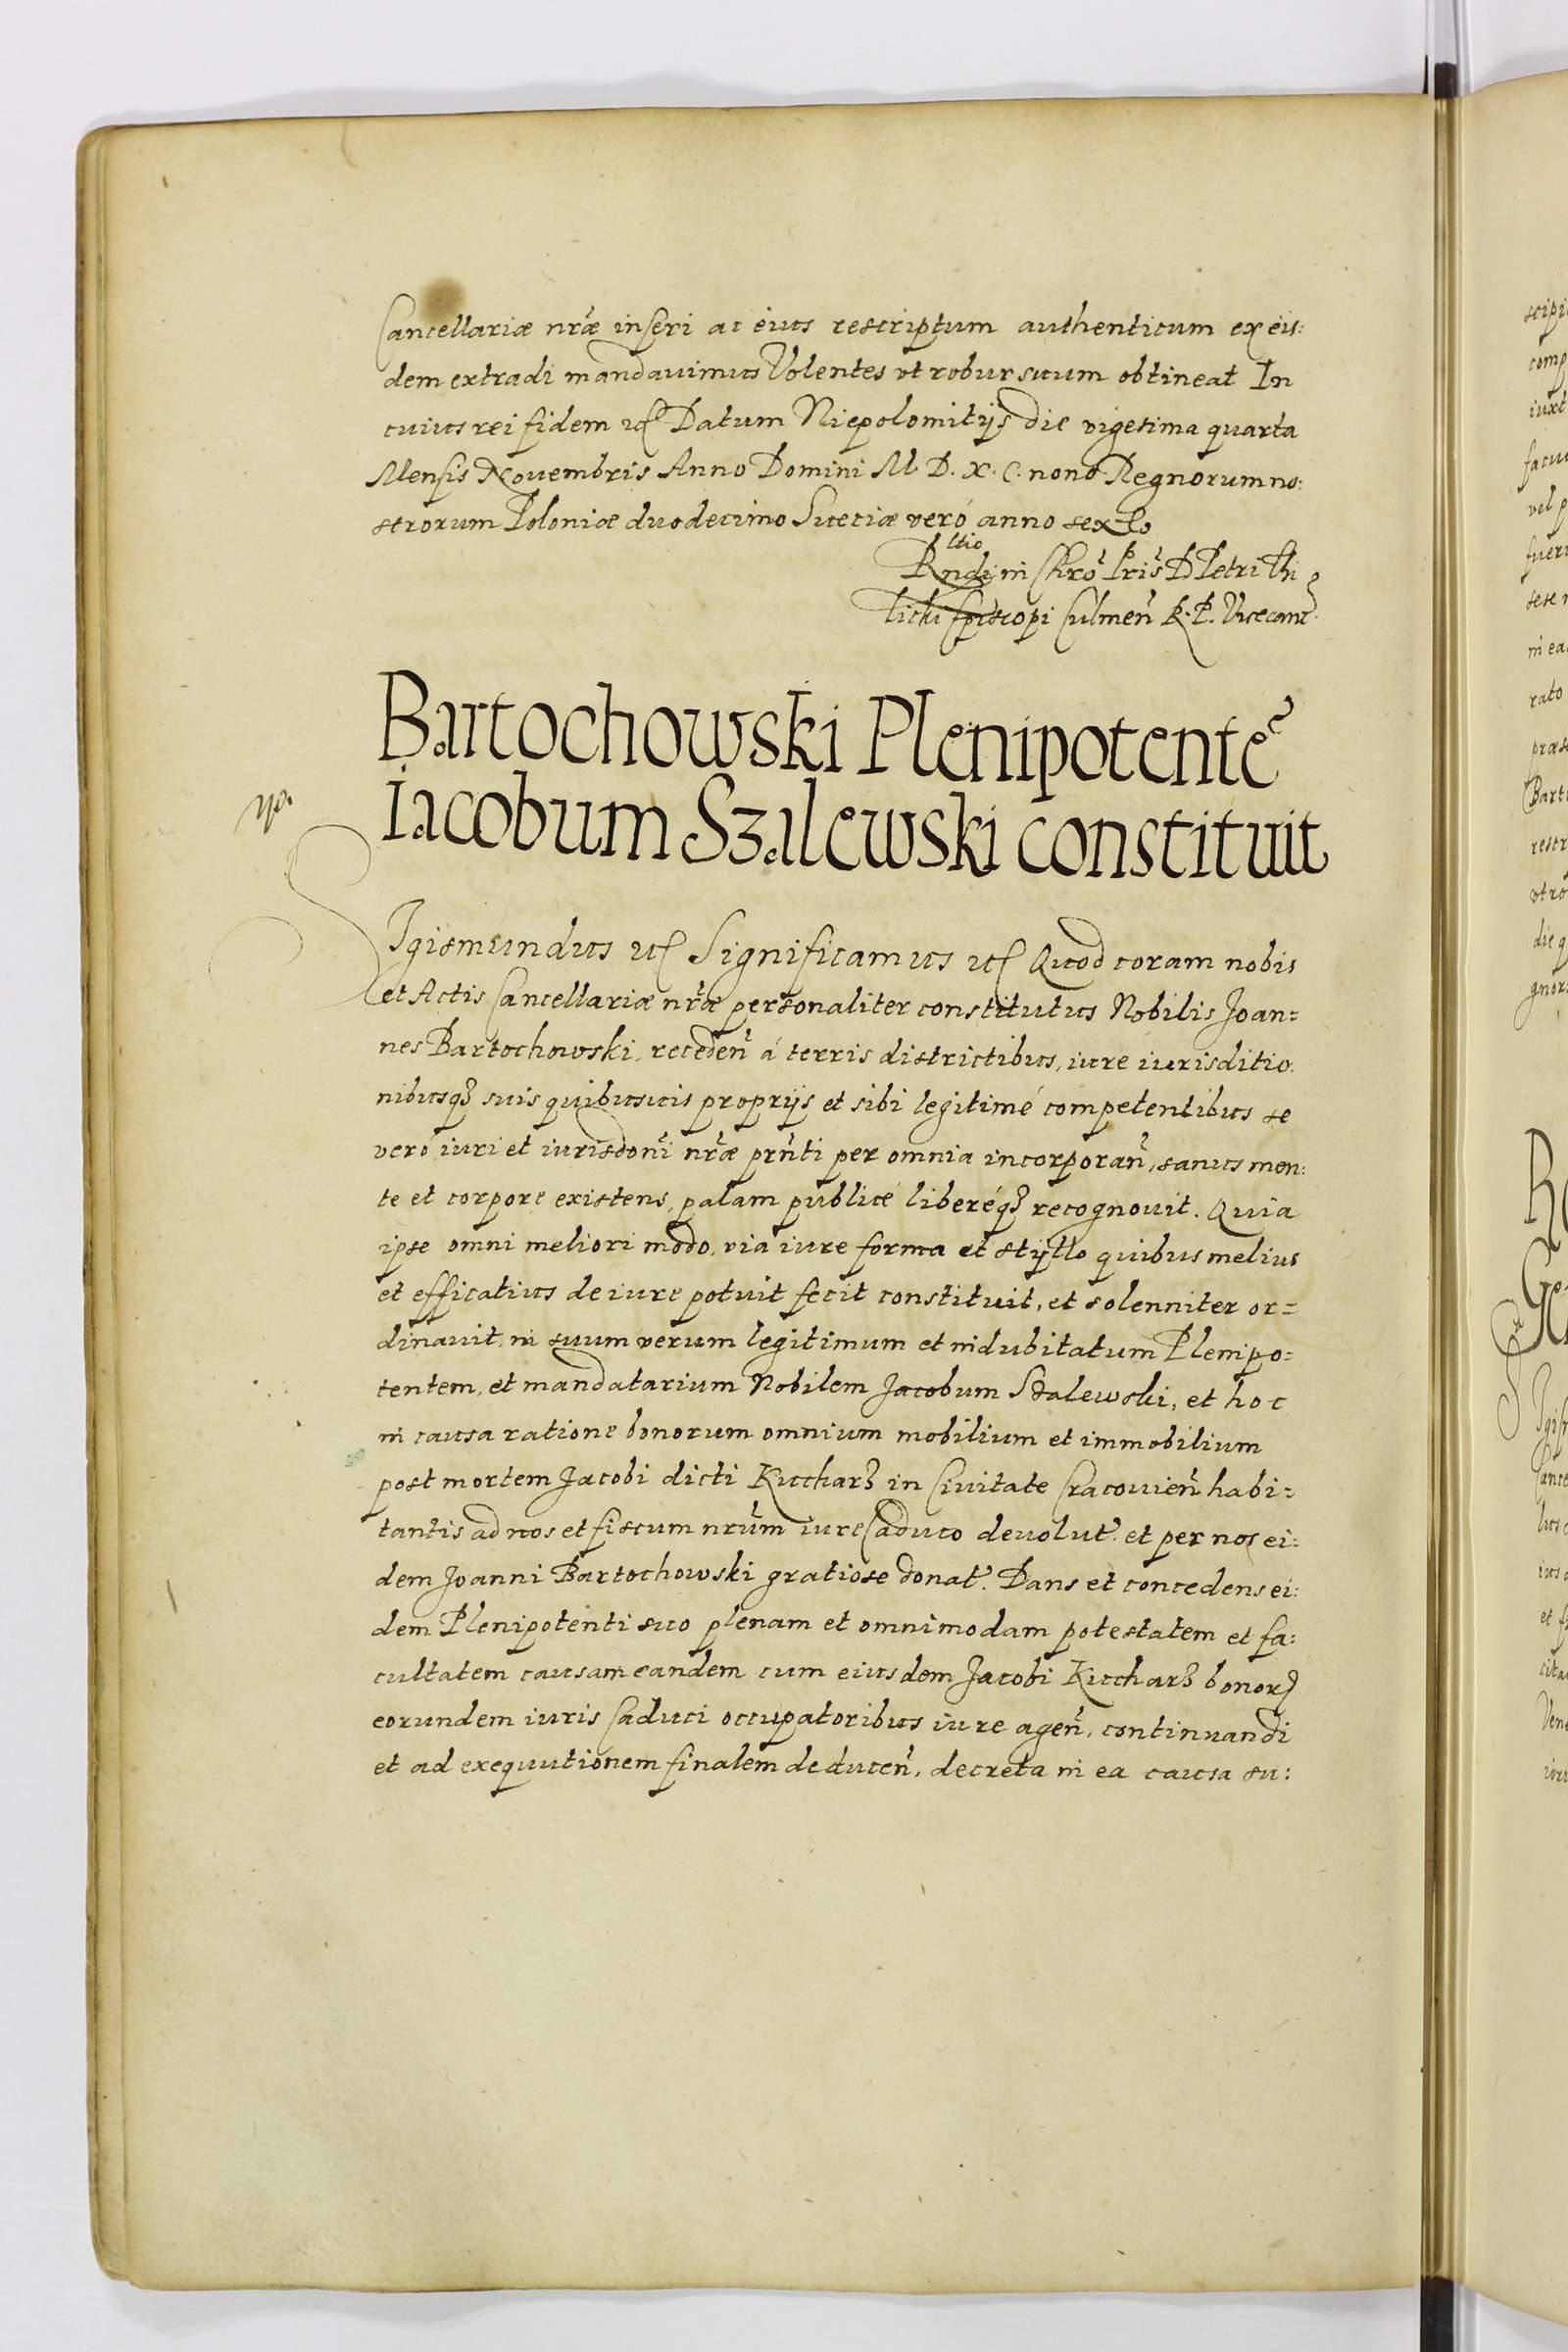 Cancellariæ nr̃æ inseri ac eius rescriptum authenticum ex eis:
dem extradi mandauimus Volentes vt robur suum obtineat In
cuius rei fidem etc Datum Niepolomitijs die vigesima quarta
Mensis Nouembris Anno Domini M. D. X. C. nono Regnorum no:
strorum Poloniæ duodecimo Sueciæ veró anno sexto
Rltio
Rndi in Chrõ Pris̃ D Petri Thi
licki Episcopi Culmen̄ R. P. Vicecanc̄.
Bartochowski Plenipotentē
Iacobum Szalewski constituit
Sigismundus etc Significamus etc Quod coram nobis
et Actis Cancellariæ nr̃æ personaliter constitutus Nobilis Joan=
nes Bartochowski, receden̄ á terris districtibus, iure iurisditio
nibusq₃ suis quibusuis proprijs et sibi legitimé competentibus se
veró iuri et iurisdonī nr̃æ prñti per omnia incorporan̄, sanus men:
te et corpore existens, palam publicé liberéq₃ recognouit. Quia
ipse omni meliori modo, via iure forma et stijllo quibus melius
et efficatius de iure potuit fecit constituit, et solenniter or=
dinauit, in suum verum legitimum et indubitatum Plenipo=
tentem, et mandatarium Nobilem Jacobum Szalewski, et hoc
in causa ratione bonorum omnium mobilium et immobilium
post mortem Jacobi dicti Kucharz in Ciuitate Cracouien̄ habi=
tantis ad nos et fiscum nrũm iure Caduco deuolut̃. et per nos ei:
dem Joanni Bartochowski gratiose donat̃. Dans et concedens ei:
dem Plenipotenti suo plenam et omnimodam potestatem et fa:
cultatem causam eandem cum eiusdem Jacobi Kucharz bonorꝝ
eorundem iuris Caduci occupatoribus iure agen̄, continuandi
et ad exequutionem finalem deducen̄, decreta in ea causa su: